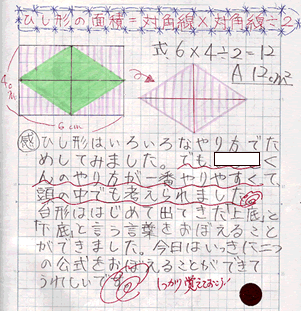 ひし形の面積=対角線×対角線÷2
式 6×4÷2=12
A 12cm²
4cm
6cm
感 ひし形はいろいろなやり方でた
めしてみました。でも く
んのやり方が一番やりやすくて、
頭の中でも考えられました。
台形ははじめて出てきた「上底」と
「下底」と言う言葉をおぼえること
ができました。今日はいっきに二つ
の公式をおぼえることができて
うれしいです。
しっかり覚えておこう!